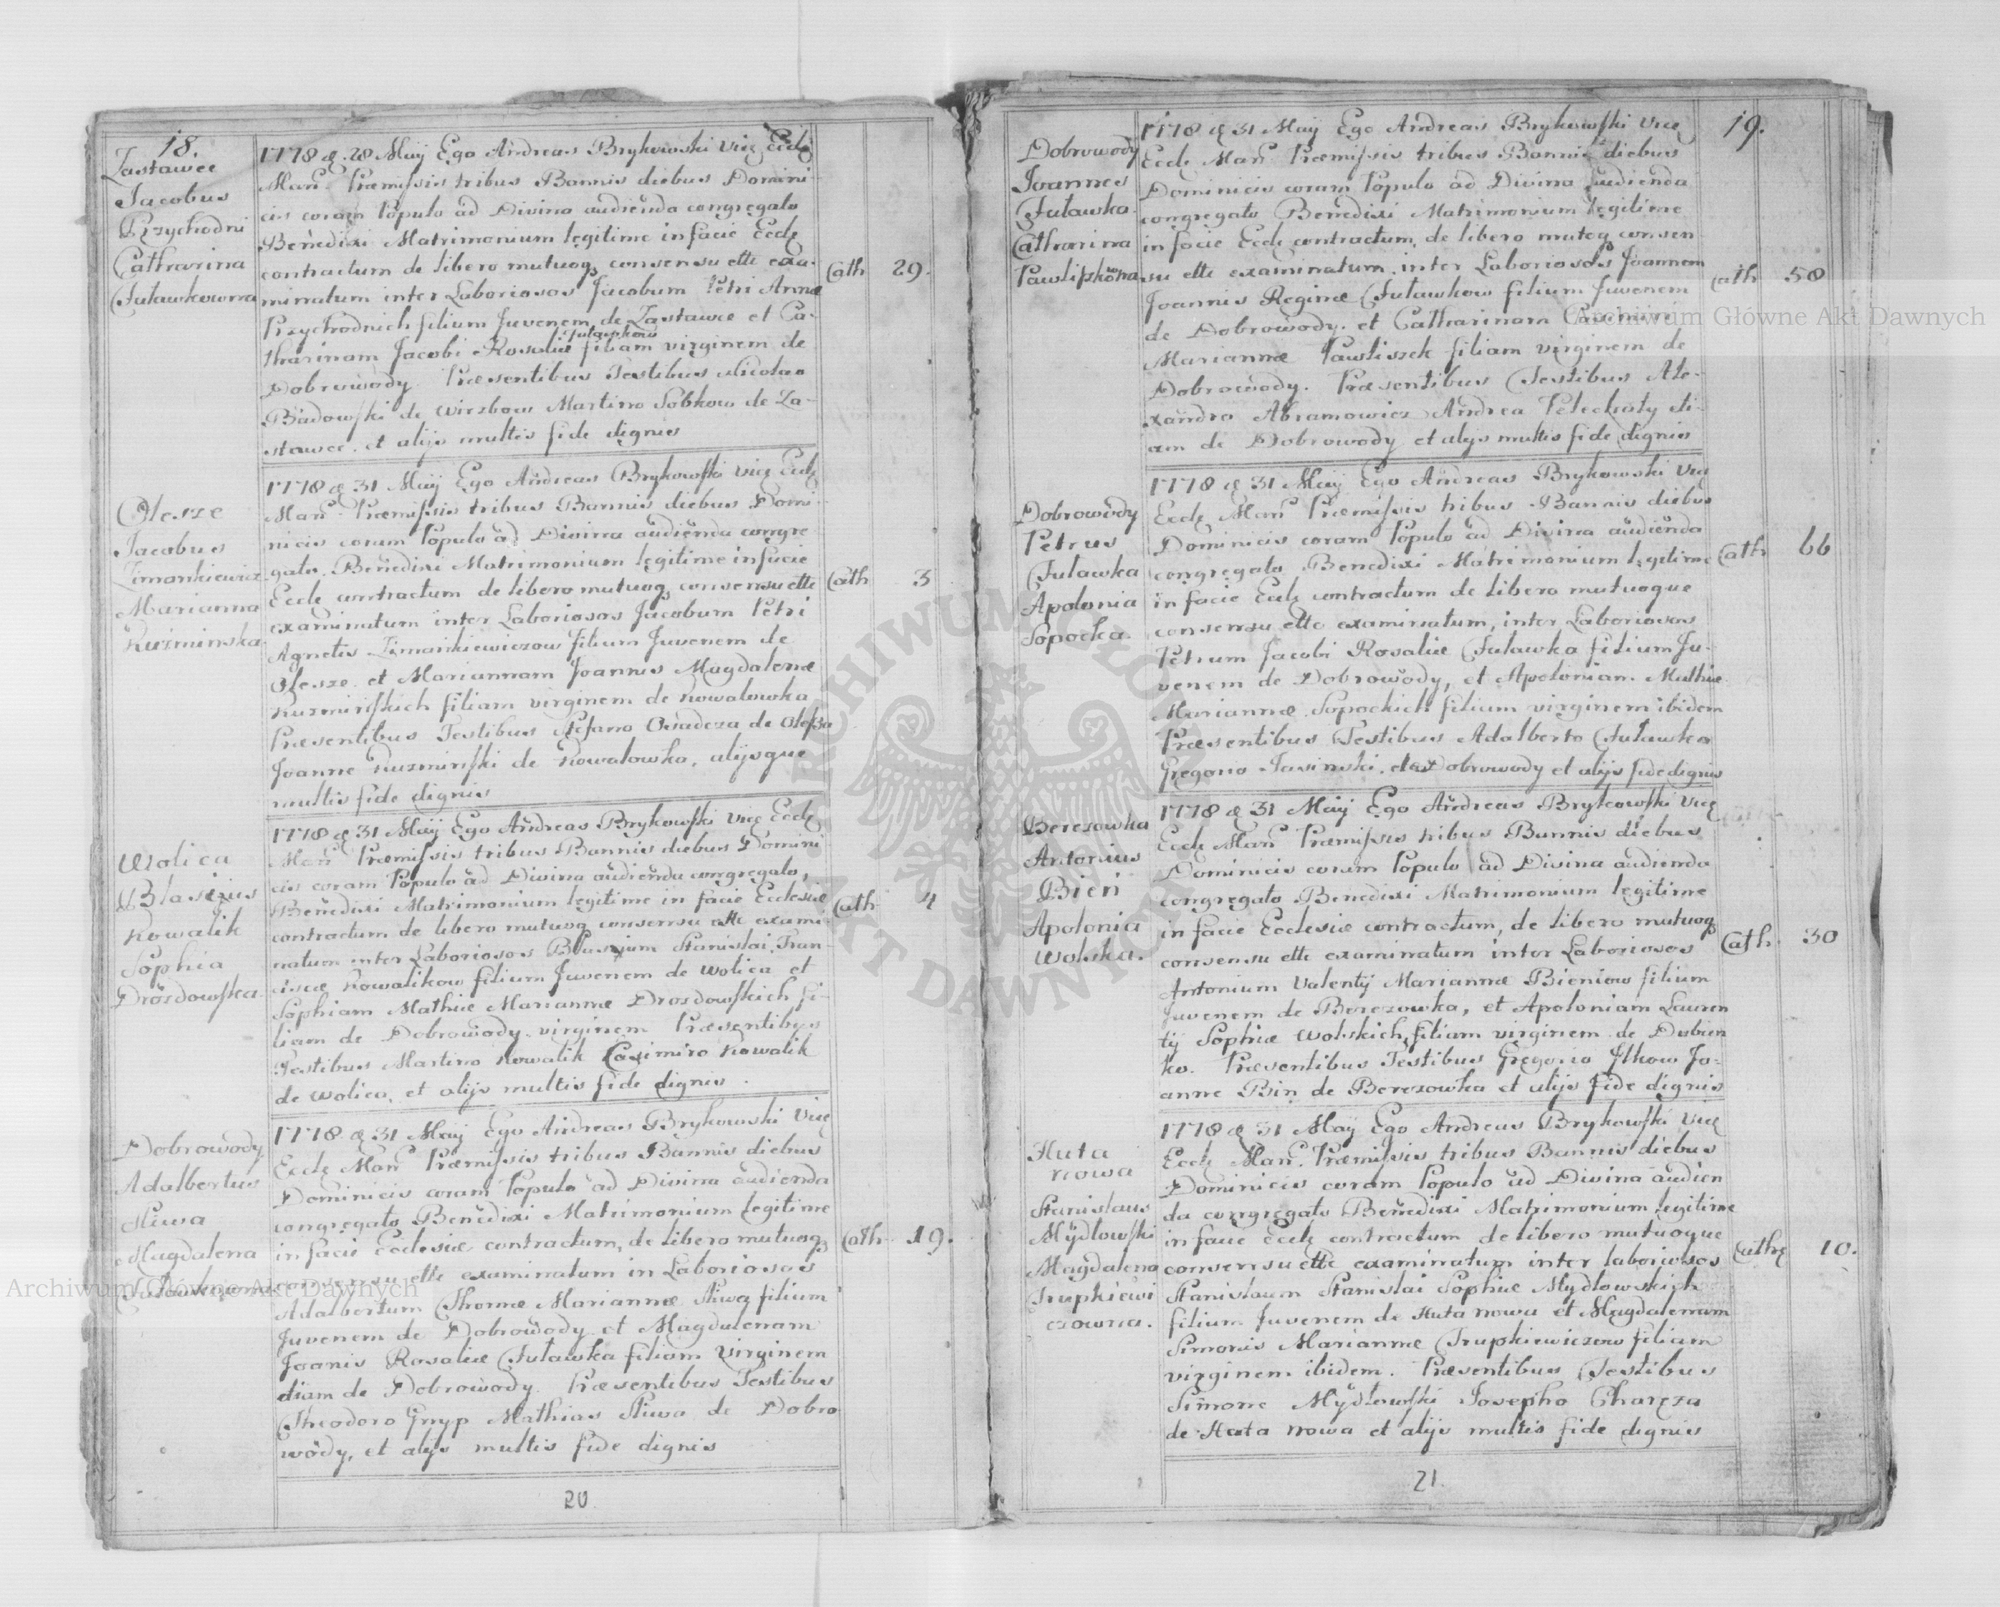 18.
Zastawce
Jacobus
Przychodni
Catharina
Tuławkowna
1778 æ. 28 Maij Ego Andreas Brykowski Vice Eccle
Man: Præmissis tribus Bannis diebus Domini-
cis coram Populo ad Divina audienda congregato
Benedixi Matrimonium legitime in facie Eccle
contractum de libero mutuoq consensu ette exa-
minatum inter Laboriosos Jacobum Petri Annæ
Przychodnich filium Juvenem de Zastawce et Ca-
tharinam Jacobi Rosaliæ Tuławkow filiam virginem de
Dobrowody. Præsentibus Testibus Nicolao
Badowski de Wierzbow Martino Sobkow de Za-
stawce. et alijs multis fide dignis
Cath 29.
Olesze
Jacobus
Zimankiewicz
Marianna
Kuzminska
1778 æ 31 Maij Ego Andreas Brykowski Vice Eccle
Man: Præmissis tribus Bannis diebus Domi-
nicis coram Populo ad Divina audienda congre
gato. Benedixi Matrimonium legitime in facie
Eccle contractum de libero mutuoq consensu ette
examinatum inter Laboriosos Jacobum Petri
Agnetis Zimankiewiczow filium Juvenem de
Olesze. et Mariannam Joannis Magdalenæ
Kuzminskich filiam virginem de Kowalowka
Præsentibus Testibus Stefano Osadcza de Olesza
Joanne Kuzminski de Kowalowka, alijsque
multis fide dignis
Cath 3
Wolica
Blasius
Kowalik
Sophia
Drozdowska
1778 æ 31 Maij Ego Andreas Brykowski Vice Eccle
Man: Præmissis tribus Bannis diebus Domini
cis coram Populo ad Divina audienda congregato,
Benedixi Matrimonium legitime in facie Ecclesiæ
contractum de libero mutuoq consensu ette exami
natum inter Laboriosos Blasium Stanislai, Fran-
ciscæ Kowalikow filium Juvenem de Wolica et
Sophiam Mathiæ Mariannæ Drozdowskich fi-
liam de Dobrowody virginem Præsentibus
Testibus Martino Kowalik Casimiro Kowalik
de Wolica, et alijs multis fide dignis.
Cath 4
Dobrowody
Adalbertus
Sliwa
Magdalena
Tuławkowna
1778 æ 31 Maij Ego Andreas Brykowski Vice
Eccle Man: Præmissis tribus Bannis diebus
Dominicis coram Populo ad Divina audienda
congregato Benedixi Matrimonium legitime
in facie Ecclesiæ contractum, de libero mutuoq
consensu ette examinatum in Laboriosos
Adalbertum Thomæ Mariannæ Sliwa filium
Juvenem de Dobrowody et Magdalenam
Joanis Rosaliæ Tuławka filiam virginem
etiam de Dobrowody. Præsentibus Testibus
Theodoro Gnyp Mathias Sliwa de Dobro
wody, et alijs multis fide dignis
Cath 19.
20.
19.
Dobrowody
Joannes
Tuławka
Catharina
Pawlipkowna
1778 æ 31 Maij Ego Andreas Brykowski Vice
Eccle Man: Præmissis tribus Bannis diebus
Dominicis coram Populo ad Divina audienda
congregato Benedixi Matrimonium legitime
in facie Eccle contractum, de libero mutuq consen
su ette examinatum. inter Laboriosos Joannem
Joannis Reginæ Tuławkow filium Juvenem
de Dobrowody. et Catharinam Casimiri
Mariannæ Pawliszek filiam virginem de
Dobrowody. Præsentibus Testibus Ale-
xandro Abramowicz Andrea Pelechaty eti-
am de Dobrowody et alijs multis fide dignis
Cath 58
Dobrowody
Petrus
Tulawka
Apolonia
Sopocka.
1778 æ 31 Maij Ego Andreas Brykowski Vice
Eccle Man: Præmissis tribus Bannis diebus
Dominicis coram Populo ad Divina audienda
congregato Benedixi Matrimonium legitime
in facie Eccle contractum de libero mutuoque
consensu ette examinatum, inter Laboriosos
Petrum Jacobi Rosaliæ Tulawka filium Ju-
venem de Dobrowody, et Apoloniam. Mathiæ
Mariannæ Sopockich filiam virginem ibidem
Præsentibus Testibus Adalberto Tuławka
Gregorio Jasinski, de Dobrowody et alijs fide dignis
Cath 66
Berezowka
Antonius
Bień
Apolonia
Wolska.
1778 æ 31 Maij Ego Andreas Brykowski Vice
Eccle Man: Præmissis tribus Bannis diebus
Dominicis coram Populo ad Divina audienda
congregato Benedixi Matrimonium legitime
in facie Ecclesiæ contractum, de libero mutuoq
consensu ette examinatum inter Laboriosos
Antonium Valentij Mariannæ Bieniow filium
Juvenem de Berezowka, et Apoloniam Lauren
tij Sophiæ Wolskich, filiam virginem. de Dubien
ko. Præsentibus Testibus Gregorio Ilkow Jo-
anne Bin de Berezowka et alijs fide dignis
Cath. 30
Huta
nowa
Stanislaus
Mydłowski
Magdalena
Trupkiewi
czowna.
1778 æ 31 Maij Ego Andreas Brykowski Vice
Eccle Man: Præmissis tribus Bannis diebus
Dominicis coram Populo ad Divina audien
da congregato Benedixi Matrimonium legitime
in facie Eccle contractum de libero mutuoque
consensu ette examinatum inter laboriosos
Stanislaum Stanislai Sophiæ Mydlowskich
filium Juvenem de Huta nowa et Magdalenam
Simonis Mariannæ Trupkiewiczow filiam
virginem ibidem. Præsentibus Testibus
Simone Mydłowski Josepho Charęza
de Huta nowa et alijs multis fide dignis
Cathę 10.
21.
Archiwum Główne Akt Dawnych
Archiwum Główne Akt Dawnych
ARCHIWUM GŁÓWNE AKT DAWNYCH